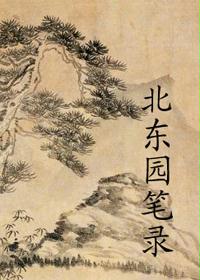 北东园笔录